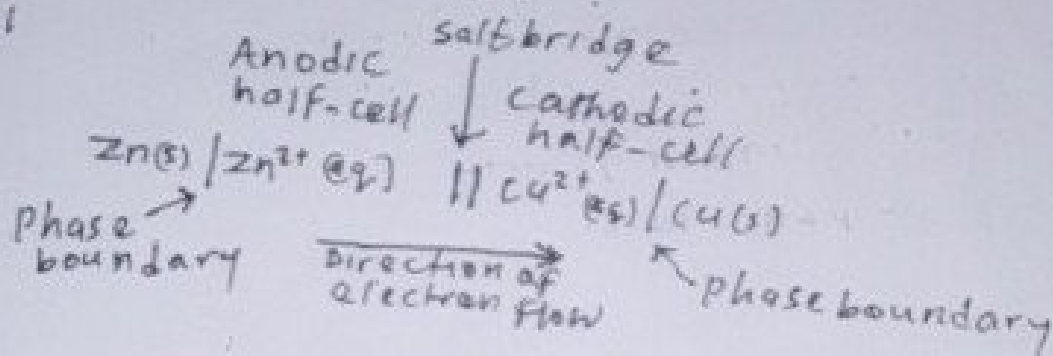 1
salt bridge
Anodic
half-cell
cathodic
half-cell
Zn(s) | Zn²⁺ (aq) || Cu²⁺ (aq) | Cu(s)
Phase
boundary
Direction of
electron flow
phase boundary